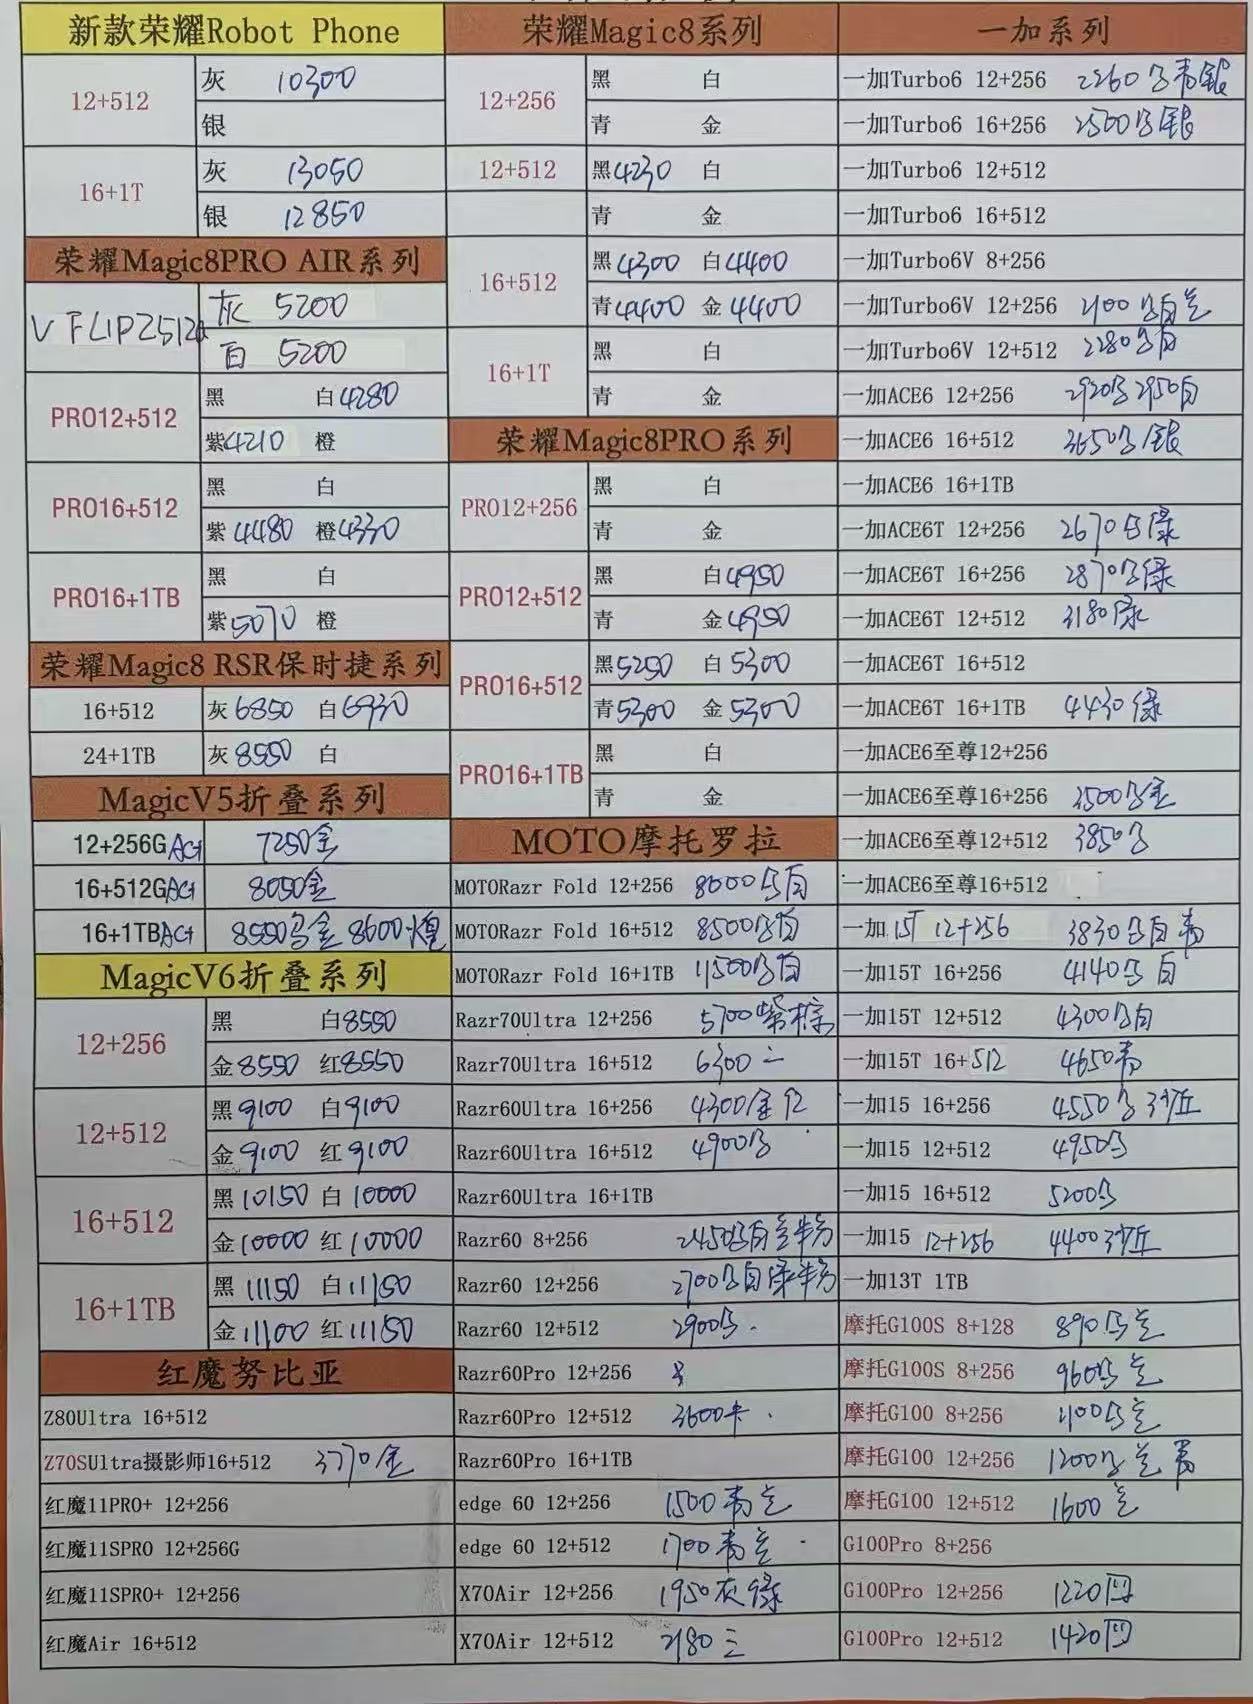 新款荣耀Robot Phone
12+512
灰 10300
银
16+1T
灰 13050
银 12850
荣耀Magic8PRO AIR系列
V FLIP2512
灰 5200
白 5200
PRO12+512
黑 白4280
紫4210 橙
PRO16+512
黑 白
紫4480 橙4330
PRO16+1TB
黑 白
紫5070 橙
荣耀Magic8 RSR保时捷系列
16+512 灰6850 白6930
24+1TB 灰8550 白
MagicV5折叠系列
12+256G 7250金
16+512G 8050金
16+1TB 8550乌金 8600
MagicV6折叠系列
12+256
黑 白8550
金8550 红8550
12+512
黑9100 白9100
金9100 红9100
16+512
黑10150 白10000
金10000 红10000
16+1TB
黑11150 白11150
金11100 红11150
红魔努比亚
Z80Ultra 16+512
Z70SUltra摄影师16+512 3770金
红魔11PRO+ 12+256
红魔11SPRO 12+256G
红魔11SPRO+ 12+256
红魔Air 16+512
荣耀Magic8系列
12+256
黑 白
青 金
12+512
黑4230 白
青 金
16+512
黑4300 白4400
青4400 金4400
16+1T
黑 白
青 金
荣耀Magic8PRO系列
PRO12+256
黑 白
青 金
PRO12+512
黑 白4950
青 金4950
PRO16+512
黑5250 白5300
青5300 金5300
PRO16+1TB
黑 白
青 金
MOTO摩托罗拉
MOTORazr Fold 12+256 8000 白
MOTORazr Fold 16+512 8500 白
MOTORazr Fold 16+1TB 11500 白
Razr70Ultra 12+256 5700紫棕
Razr70Ultra 16+512 6300 二
Razr60Ultra 16+256 4300金红
Razr60Ultra 16+512 4900
Razr60Ultra 16+1TB
Razr60 8+256 2450 白
Razr60 12+256 2700 白绿
Razr60 12+512 2900
Razr60Pro 12+256
Razr60Pro 12+512 3600卡
Razr60Pro 16+1TB
edge 60 12+256 1500青兰
edge 60 12+512 1700青兰
X70Air 12+256 1950灰绿
X70Air 12+512 2180三
一加系列
一加Turbo6 12+256 2260 青银
一加Turbo6 16+256 2500 银
一加Turbo6 12+512
一加Turbo6 16+512
一加Turbo6V 8+256
一加Turbo6V 12+256 2100 白兰
一加Turbo6V 12+512 2280 白
一加ACE6 12+256 2920 2950白
一加ACE6 16+512 3650 银
一加ACE6 16+1TB
一加ACE6T 12+256 2670 绿
一加ACE6T 16+256 2870 绿
一加ACE6T 12+512 3180绿
一加ACE6T 16+512
一加ACE6T 16+1TB 4430绿
一加ACE6至尊12+256
一加ACE6至尊16+256 3500 金
一加ACE6至尊12+512 3850
一加ACE6至尊16+512
一加15T 12+256 3830 白青
一加15T 16+256 4140 白
一加15T 12+512 4300 白
一加15T 16+512 4650青
一加15 16+256 4550 沙丘
一加15 12+512 4950
一加15 16+512 5200
一加15 12+256 4400沙丘
一加13T 1TB
摩托G100S 8+128 890 兰
摩托G100S 8+256 960 兰
摩托G100 8+256 1100 兰
摩托G100 12+256 1200 兰 青
摩托G100 12+512 1600兰
G100Pro 8+256
G100Pro 12+256 1220
G100Pro 12+512 1420